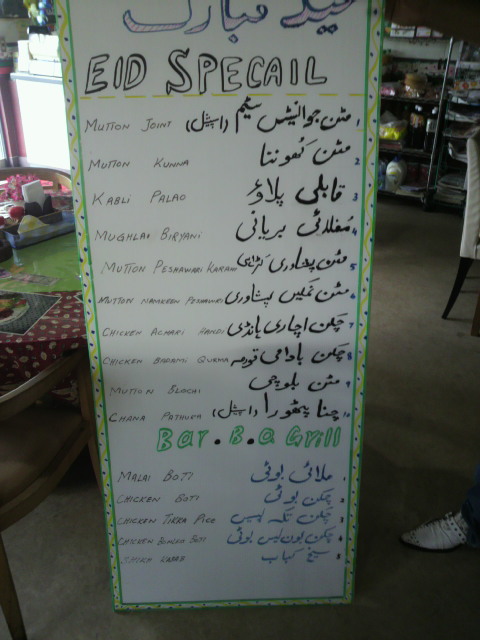 عید مبارک
EID SPECAIL
MUTTON JOINT (اسپیشل) مٹن جوائینٹس سٹیم 1
MUTTON KUNNA مٹن کُھوننا 2
KABLI PALAO قابلی پلاؤ 3
MUGHLAI BIRYANI مُغلائی بریانی 4
MUTTON PESHAWARI KARAHI مٹن پشاوری کڑاہی 5
MUTTON NAMKEEN PESHAWARI مٹن نمکین پشاوری 6
CHICKEN ACHARI HANDI چکن اچاری ہانڈی 7
CHICKEN BADAMI QURMA چکن بادامی قورمہ 8
MUTTON BLOCHI مٹن بلوچی 9
CHANA PATHURA (اسپیشل) چنا پٹھورا 10
Bar.B.Q Grill
MALAI BOTI ملائی بوٹی 1
CHICKEN BOTI چکن بوٹی 2
CHICKEN TIKKA PICE چکن تکہ پیس 3
CHICKEN BONLES BOTI چکن بون لیس بوٹی 4
SHIKH KABAB سیخ کباب 5